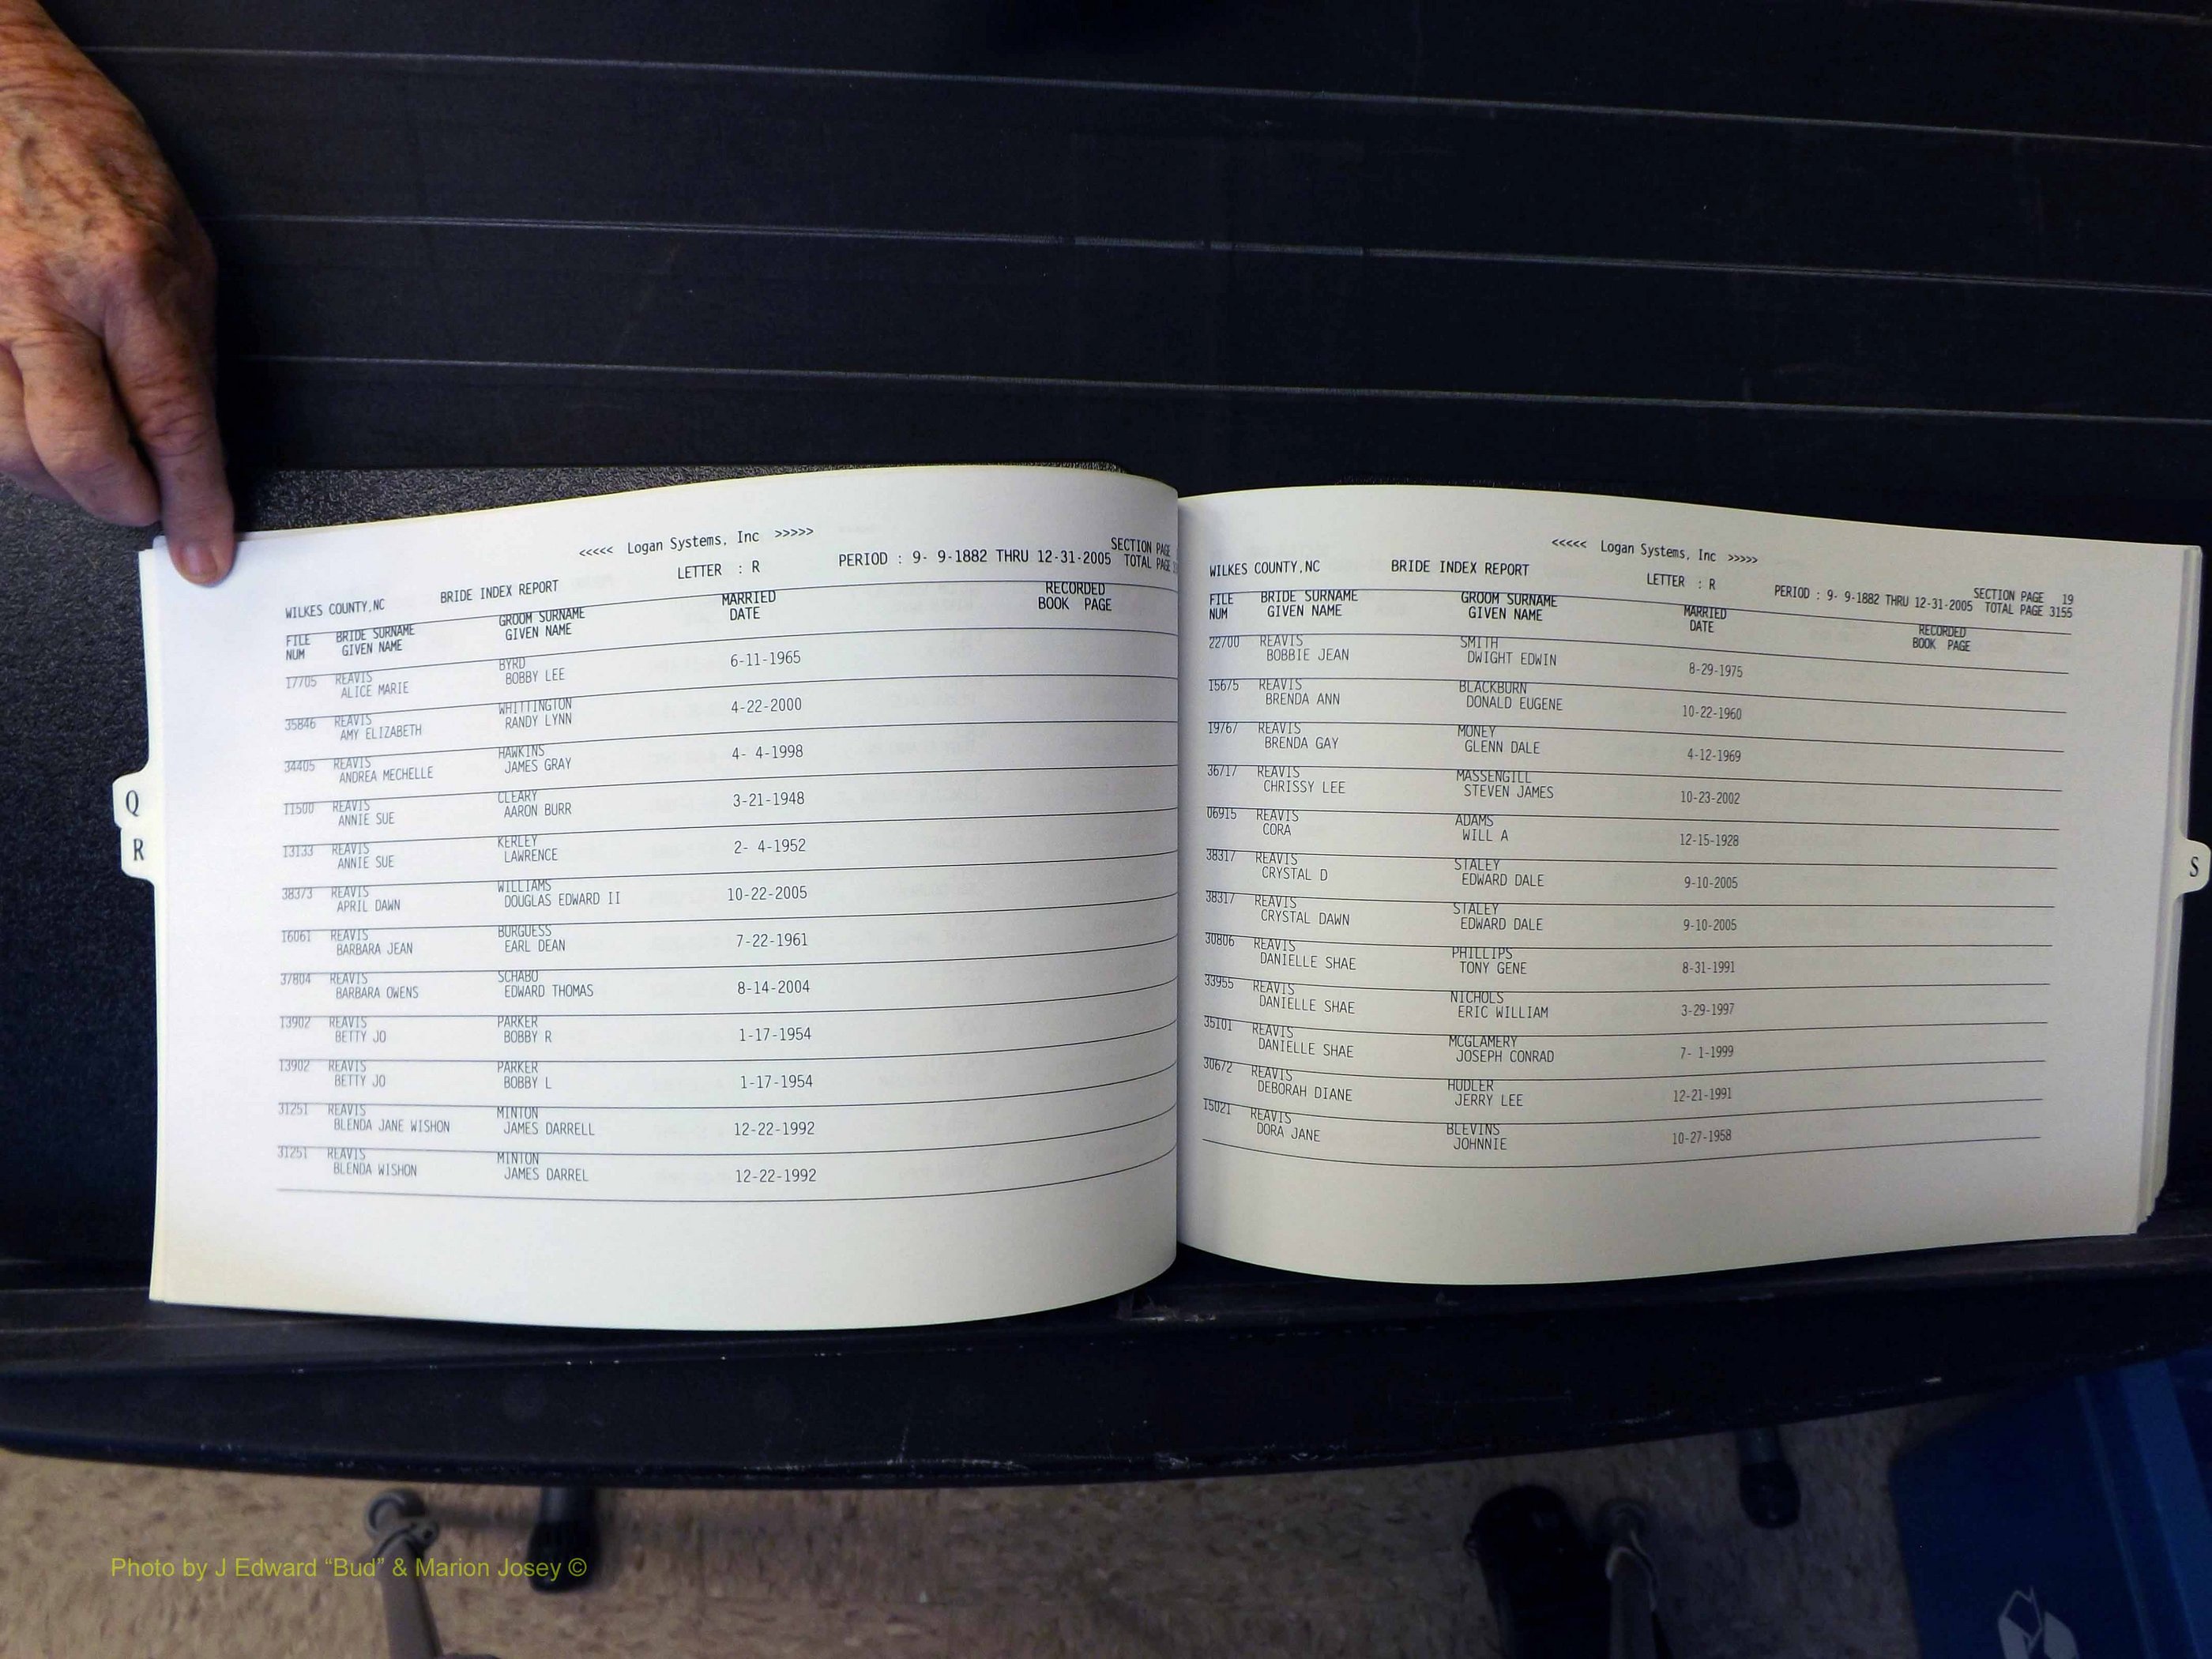 <<<<< Logan Systems, Inc >>>>>
WILKES COUNTY,NC BRIDE INDEX REPORT LETTER : R PERIOD : 9- 9-1882 THRU 12-31-2005 SECTION PAGE
TOTAL PAGE
FILE BRIDE SURNAME GROOM SURNAME MARRIED RECORDED
NUM GIVEN NAME GIVEN NAME DATE BOOK PAGE
17705 REAVIS BYRD 6-11-1965
ALICE MARIE BOBBY LEE
35846 REAVIS WHITTINGTON 4-22-2000
AMY ELIZABETH RANDY LYNN
34405 REAVIS HAWKINS 4- 4-1998
ANDREA MECHELLE JAMES GRAY
11500 REAVIS CLEARY 3-21-1948
ANNIE SUE AARON BURR
13133 REAVIS KERLEY 2- 4-1952
ANNIE SUE LAWRENCE
38373 REAVIS WILLIAMS 10-22-2005
APRIL DAWN DOUGLAS EDWARD II
16061 REAVIS BURGUESS 7-22-1961
BARBARA JEAN EARL DEAN
37804 REAVIS SCHABO 8-14-2004
BARBARA OWENS EDWARD THOMAS
13902 REAVIS PARKER 1-17-1954
BETTY JO BOBBY R
13902 REAVIS PARKER 1-17-1954
BETTY JO BOBBY L
31251 REAVIS MINTON 12-22-1992
BLENDA JANE WISHON JAMES DARRELL
31251 REAVIS MINTON 12-22-1992
BLENDA WISHON JAMES DARREL
Q
R
<<<<< Logan Systems, Inc >>>>>
WILKES COUNTY,NC BRIDE INDEX REPORT LETTER : R PERIOD : 9- 9-1882 THRU 12-31-2005 SECTION PAGE 19
TOTAL PAGE 3155
FILE BRIDE SURNAME GROOM SURNAME MARRIED RECORDED
NUM GIVEN NAME GIVEN NAME DATE BOOK PAGE
22700 REAVIS SMITH 8-29-1975
BOBBIE JEAN DWIGHT EDWIN
15675 REAVIS BLACKBURN 10-22-1960
BRENDA ANN DONALD EUGENE
19767 REAVIS MONEY 4-12-1969
BRENDA GAY GLENN DALE
36717 REAVIS MASSENGILL 10-23-2002
CHRISSY LEE STEVEN JAMES
06915 REAVIS ADAMS 12-15-1928
CORA WILL A
38317 REAVIS STALEY 9-10-2005
CRYSTAL D EDWARD DALE
38317 REAVIS STALEY 9-10-2005
CRYSTAL DAWN EDWARD DALE
30806 REAVIS PHILLIPS 8-31-1991
DANIELLE SHAE TONY GENE
33955 REAVIS NICHOLS 3-29-1997
DANIELLE SHAE ERIC WILLIAM
35101 REAVIS MCGLAMERY 7- 1-1999
DANIELLE SHAE JOSEPH CONRAD
30672 REAVIS HUDLER 12-21-1991
DEBORAH DIANE JERRY LEE
15021 REAVIS BLEVINS 10-27-1958
DORA JANE JOHNNIE
S
Photo by J Edward “Bud” & Marion Josey ©